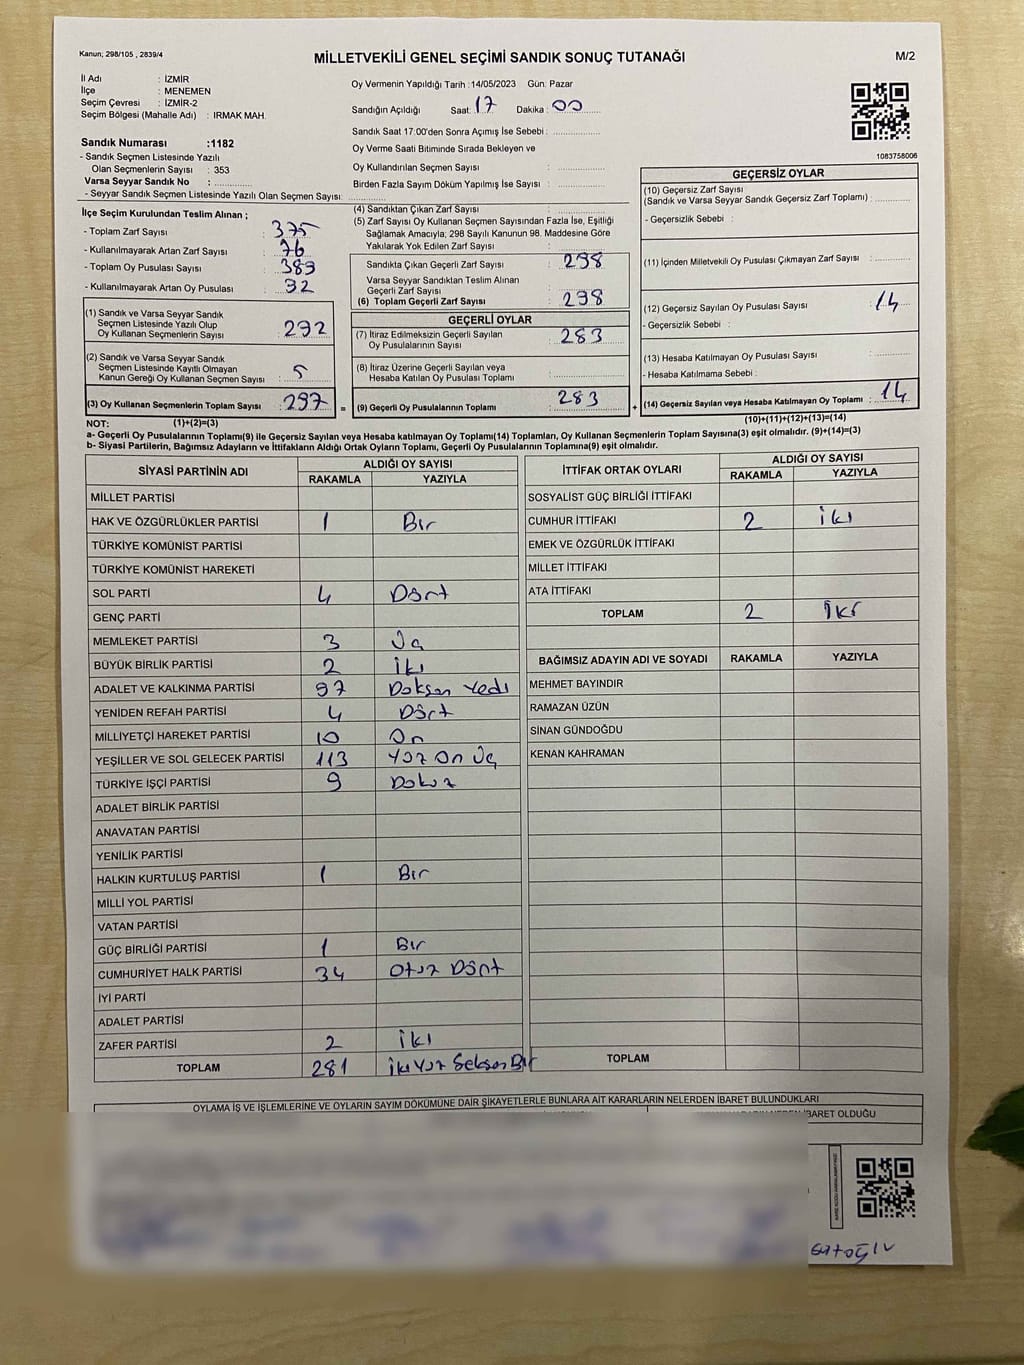 Kanun; 298/105 , 2839/4
MİLLETVEKİLİ GENEL SEÇİMİ SANDIK SONUÇ TUTANAĞI
M/2
İl Adı : İZMİR
İlçe : MENEMEN
Seçim Çevresi : İZMİR-2
Seçim Bölgesi (Mahalle Adı) : IRMAK MAH.
Oy Vermenin Yapıldığı Tarih :14/05/2023 Gün: Pazar
Sandığın Açıldığı Saat: 17 Dakika : 00
Sandık Saat 17:00'den Sonra Açımış İse Sebebi :
Oy Verme Saati Bitiminde Sırada Bekleyen ve
Oy Kullandırılan Seçmen Sayısı :
Birden Fazla Sayım Döküm Yapılmış İse Sayısı :
1083758006
Sandık Numarası :1182
- Sandık Seçmen Listesinde Yazılı
Olan Seçmenlerin Sayısı : 353
Varsa Seyyar Sandık No :
- Seyyar Sandık Seçmen Listesinde Yazılı Olan Seçmen Sayısı:
İlçe Seçim Kurulundan Teslim Alınan ;
- Toplam Zarf Sayısı : 375
- Kullanılmayarak Artan Zarf Sayısı : 76
- Toplam Oy Pusulası Sayısı : 389
- Kullanılmayarak Artan Oy Pusulası : 92
(1) Sandık ve Varsa Seyyar Sandık
Seçmen Listesinde Yazılı Olup
Oy Kullanan Seçmenlerin Sayısı : 292
(2) Sandık ve Varsa Seyyar Sandık
Seçmen Listesinde Kayıtlı Olmayan
Kanun Gereği Oy Kullanan Seçmen Sayısı : 5
(3) Oy Kullanan Seçmenlerin Toplam Sayısı : 297
(4) Sandıktan Çıkan Zarf Sayısı :
(5) Zarf Sayısı Oy Kullanan Seçmen Sayısından Fazla İse, Eşitliği
Sağlamak Amacıyla; 298 Sayılı Kanunun 98. Maddesine Göre
Yakılarak Yok Edilen Zarf Sayısı :
Sandıkta Çıkan Geçerli Zarf Sayısı : 298
Varsa Seyyar Sandıktan Teslim Alınan
Geçerli Zarf Sayısı :
(6) Toplam Geçerli Zarf Sayısı : 298
GEÇERLİ OYLAR
(7) İtiraz Edilmeksizin Geçerli Sayılan
Oy Pusulalarının Sayısı : 283
(8) İtiraz Üzerine Geçerli Sayılan veya
Hesaba Katılan Oy Pusulası Toplamı :
= (9) Geçerli Oy Pusulalarının Toplamı : 283
GEÇERSİZ OYLAR
(10) Geçersiz Zarf Sayısı
(Sandık ve Varsa Seyyar Sandık Geçersiz Zarf Toplamı) :
- Geçersizlik Sebebi :
(11) İçinden Milletvekili Oy Pusulası Çıkmayan Zarf Sayısı :
(12) Geçersiz Sayılan Oy Pusulası Sayısı : 14
- Geçersizlik Sebebi :
(13) Hesaba Katılmayan Oy Pusulası Sayısı :
- Hesaba Katılmama Sebebi :
+ (14) Geçersiz Sayılan veya Hesaba Katılmayan Oy Toplamı : 14
NOT: (1)+(2)=(3)
(10)+(11)+(12)+(13)=(14)
a- Geçerli Oy Pusulalarının Toplamı(9) ile Geçersiz Sayılan veya Hesaba katılmayan Oy Toplamı(14) Toplamları, Oy Kullanan Seçmenlerin Toplam Sayısına(3) eşit olmalıdır. (9)+(14)=(3)
b- Siyasi Partilerin, Bağımsız Adayların ve İttifakların Aldığı Ortak Oyların Toplamı, Geçerli Oy Pusulalarının Toplamına(9) eşit olmalıdır.
SİYASİ PARTİNİN ADI
ALDIĞI OY SAYISI
RAKAMLA YAZIYLA
MİLLET PARTİSİ
HAK VE ÖZGÜRLÜKLER PARTİSİ 1 Bir
TÜRKİYE KOMÜNİST PARTİSİ
TÜRKİYE KOMÜNİST HAREKETİ
SOL PARTİ 4 Dört
GENÇ PARTİ
MEMLEKET PARTİSİ 3 Üç
BÜYÜK BİRLİK PARTİSİ 2 İki
ADALET VE KALKINMA PARTİSİ 97 Doksan Yedi
YENİDEN REFAH PARTİSİ 4 Dört
MİLLİYETÇİ HAREKET PARTİSİ 10 On
YEŞİLLER VE SOL GELECEK PARTİSİ 113 Yüz On Üç
TÜRKİYE İŞÇİ PARTİSİ 9 Dokuz
ADALET BİRLİK PARTİSİ
ANAVATAN PARTİSİ
YENİLİK PARTİSİ
HALKIN KURTULUŞ PARTİSİ 1 Bir
MİLLİ YOL PARTİSİ
VATAN PARTİSİ
GÜÇ BİRLİĞİ PARTİSİ 1 Bir
CUMHURİYET HALK PARTİSİ 34 Otuz Dört
İYİ PARTİ
ADALET PARTİSİ
ZAFER PARTİSİ 2 İki
TOPLAM 281 İki Yüz Seksen Bir
İTTİFAK ORTAK OYLARI
ALDIĞI OY SAYISI
RAKAMLA YAZIYLA
SOSYALİST GÜÇ BİRLİĞİ İTTİFAKI
CUMHUR İTTİFAKI 2 İki
EMEK VE ÖZGÜRLÜK İTTİFAKI
MİLLET İTTİFAKI
ATA İTTİFAKI
TOPLAM 2 İki
BAĞIMSIZ ADAYIN ADI VE SOYADI RAKAMLA YAZIYLA
MEHMET BAYINDIR
RAMAZAN ÜZÜN
SİNAN GÜNDOĞDU
KENAN KAHRAMAN
TOPLAM
OYLAMA İŞ VE İŞLEMLERİNE VE OYLARIN SAYIM DÖKÜMÜNE DAİR ŞİKAYETLERLE BUNLARA AİT KARARLARIN NELERDEN İBARET BULUNDUKLARI
İBARET OLDUĞU